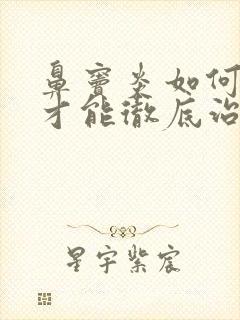 鼻窦炎如何
才能徹底治
星宇紫宸